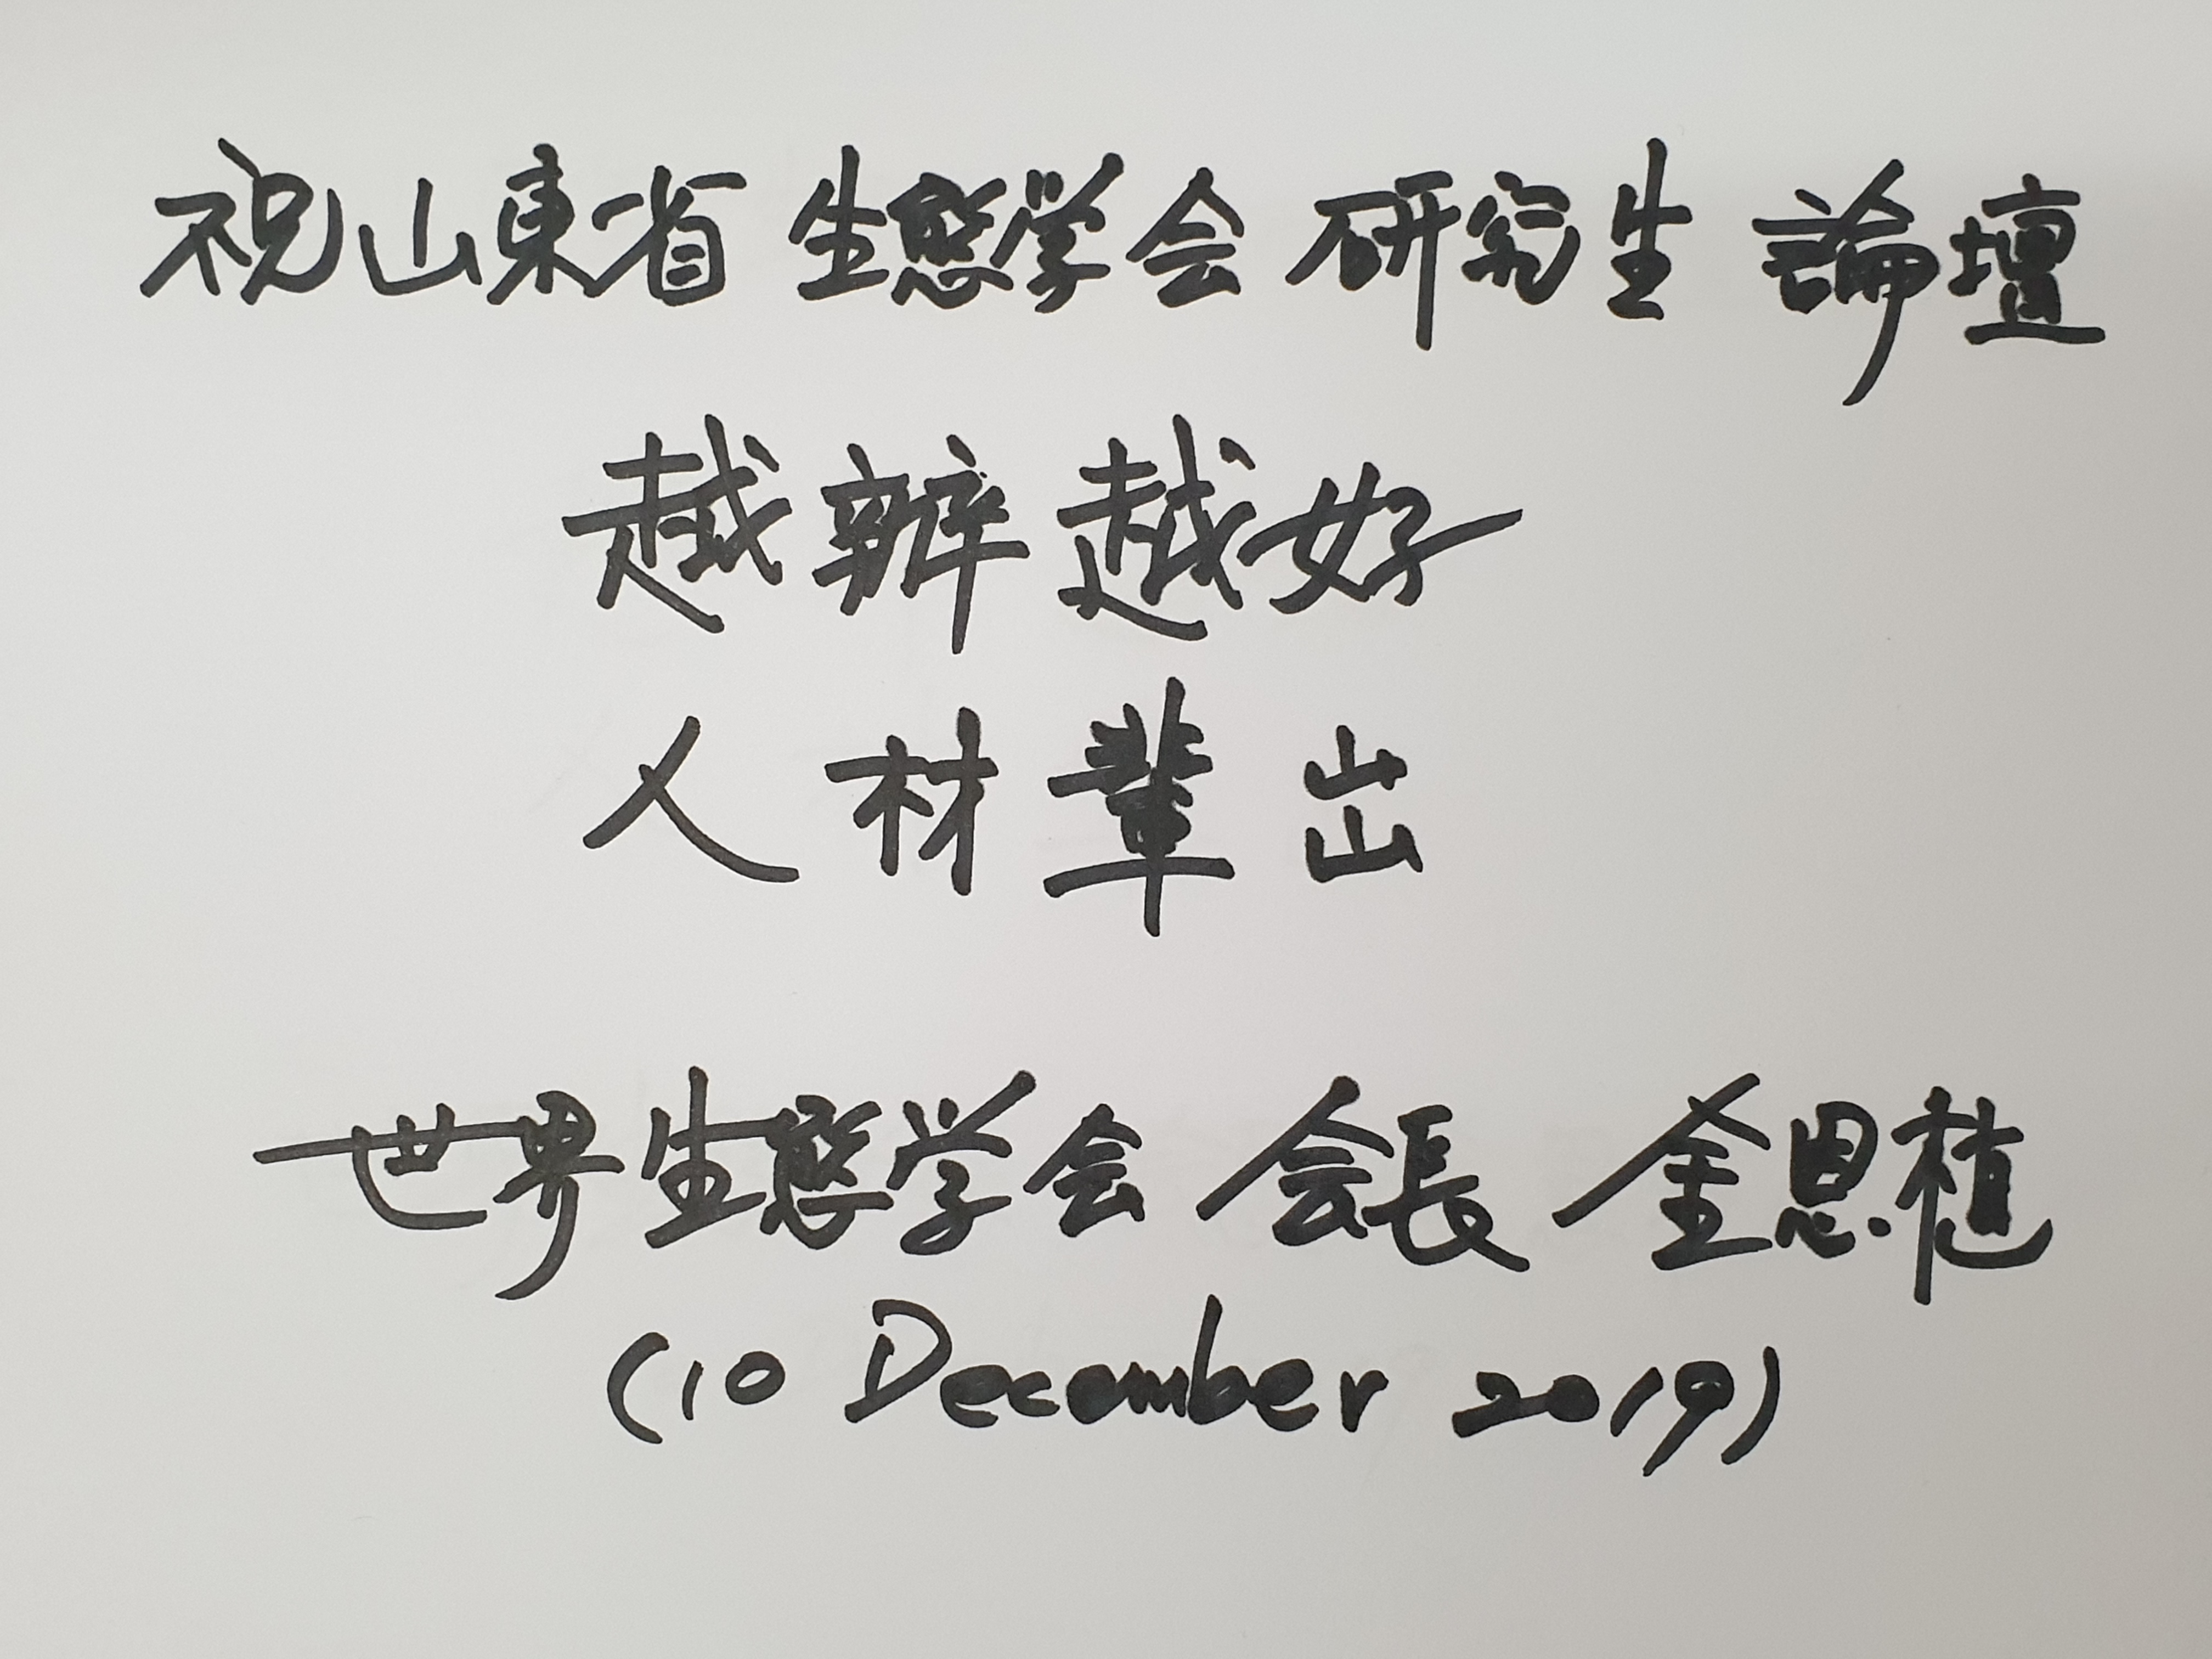 祝山東省 生態学会 研究生 論壇
越辦越好
人材輩出
世界生態学会 会長 金恩植
(10 December 2019)